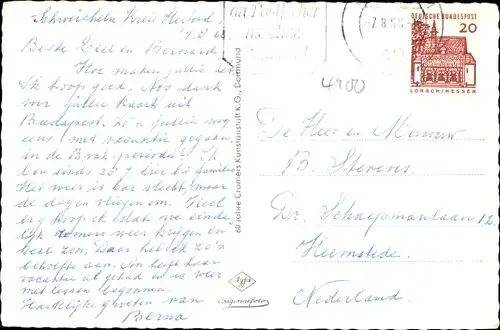 Schweicheln Kreis Herford
Beste Diel en Bernard
Hoe maken jullie het.
Ik hoop goed. Nog dank
voor jullie kaart uit
Budapest. Zijn jullie nog
eens met vacantie gegaan
in de Bvak-periode? Ik
ben sinds 20/7 hier bij familie
Het weer is bar slecht, maar
de dagen vliegen om. Heel
erg hoop ik dat we einde-
lijk zomers weer krijgen en
veel zon. Daar heb ik zo'n
behoefte aan. An heeft haar
vacantie al gehad en is weer
met lessen begonnen.
Hartelijke groeten van
Berna
60 Jahre Cramers Kunstanstalt K.G., Dortmund
Agfa
Originalfoto
an Postfächer
-7.8.68
DEUTSCHE BUNDESPOST
20
LORSCH/HESSEN
4900
De Heer en Mevrouw
B. Stevens
Dr. Schaepmanlaan 12
Heemstede.
Nederland